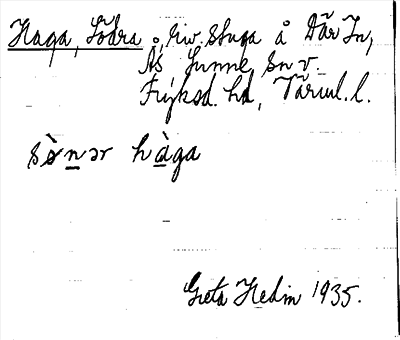 Haga, Södra, riv. stuga å Där In,
Ås Sunne sn v.
Fryksd. hd, Värml. l.
sònər hàga
Greta Hedin 1935.